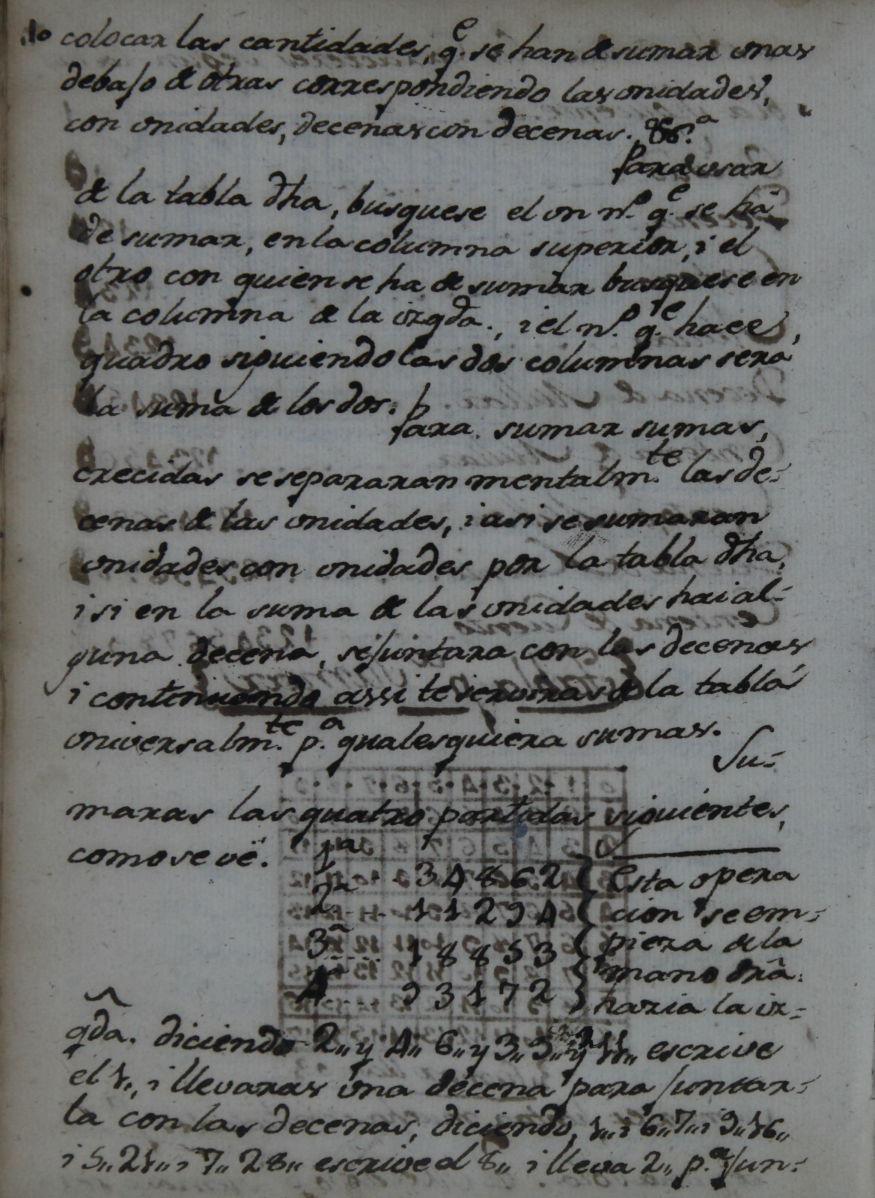 10 colocar las cantidades, q.e se han de sumar unas
debajo de otras correspondiendo las unidades,
con unidades, decenas con decenas. &.a
Para usar
de la tabla dha, busquese el un n.o q.e se ha
de sumar, en la columna superior, i el
otro con quien se ha de sumar busquese en
la columna de la izqda., i el n.o q.e hace,
quadro siguiendo las dos columnas será
la suma de los dos.
Para sumar sumas,
crecidas se separaran mentalm.te las de-
cenas de las unidades, i asi se sumaran
unidades con unidades por la tabla dha,
i si en la suma de las unidades hai al-
guna decena, se juntara con las decenas
i continuando assi te serviras de la tabla
universalm.te p.a qualesquiera sumas.
Su-
maras las quatro partidas siguientes,
como se vé.
1a 34862
2a 11294
3a 18853
4a 93172
Esta opera
cion se em-
pieza de la
mano dra.
hazia la iz-
qda. diciendo 2,, y 4,, 6,, y 3,, 9,, y 2,, 11,, escrive
el 1,, i llevaras una decena para juntar-
la con las decenas, diciendo, 1,, i 6,, 7,, i 9,, 16,,
i 5,, 21,, i 7,, 28,, escrive el 8,, i lleva 2,, p.a jun-